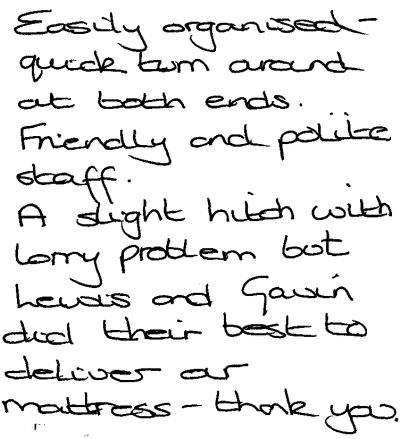 Easily organised -
quick turn around
at both ends.
Friendly and polite
staff.
A slight hitch with
lorry problem but
Lewis and Gavin
did their best to
deliver our
mattress - thank you.